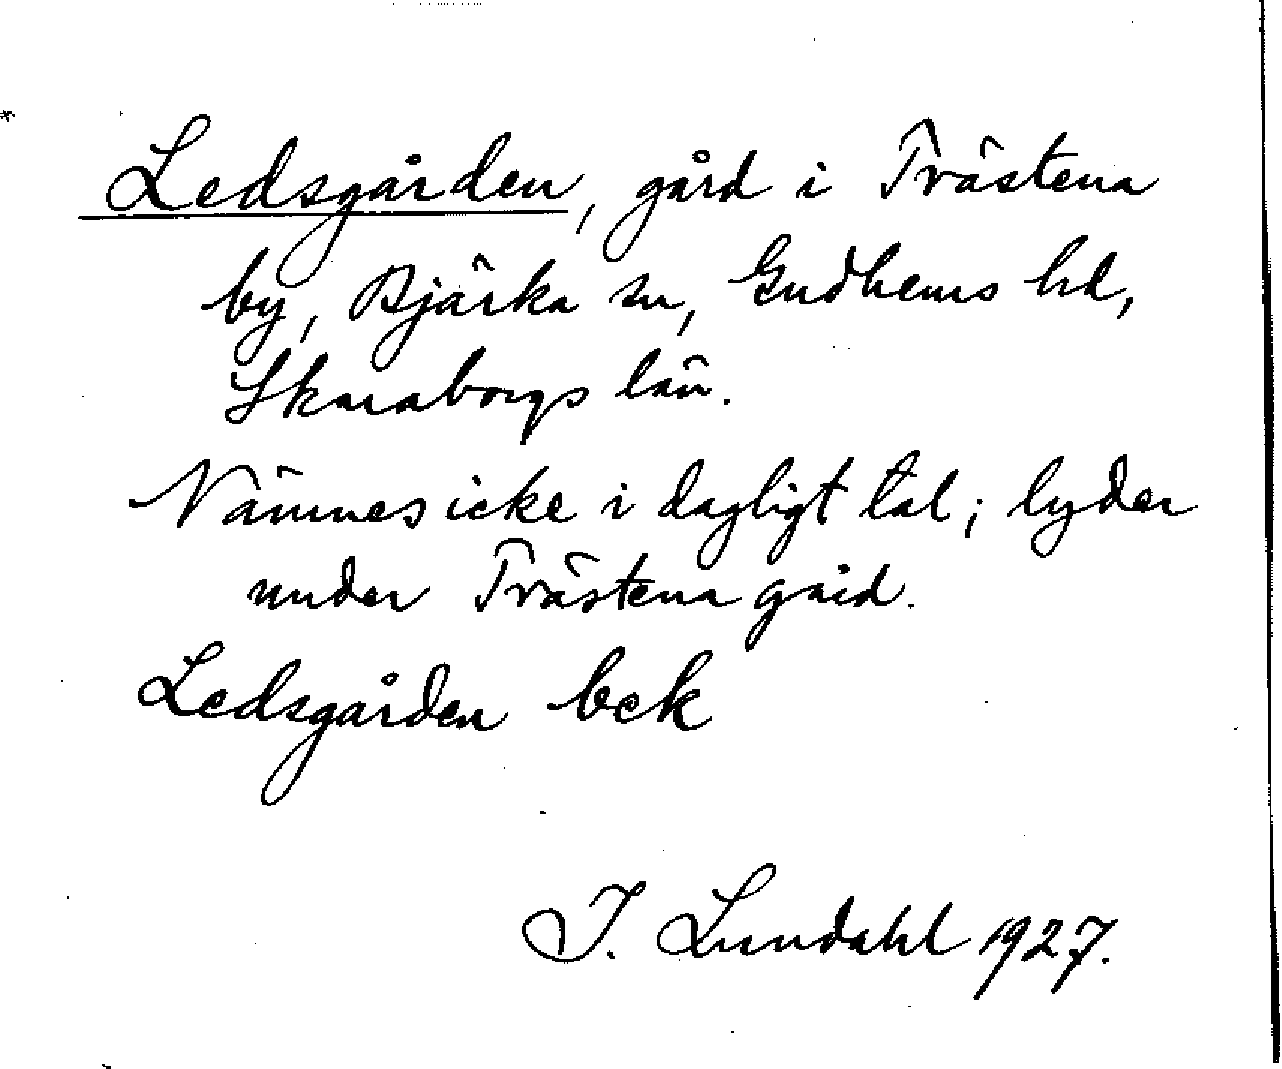 Ledsgården, gård i Trästena
by, Bjärka sn, Gudhems hd,
Skaraborgs län.
Nämnes icke i dagligt tal; lyder
under Trästena gård.
Ledsgården bek
I. Lundahl 1927.